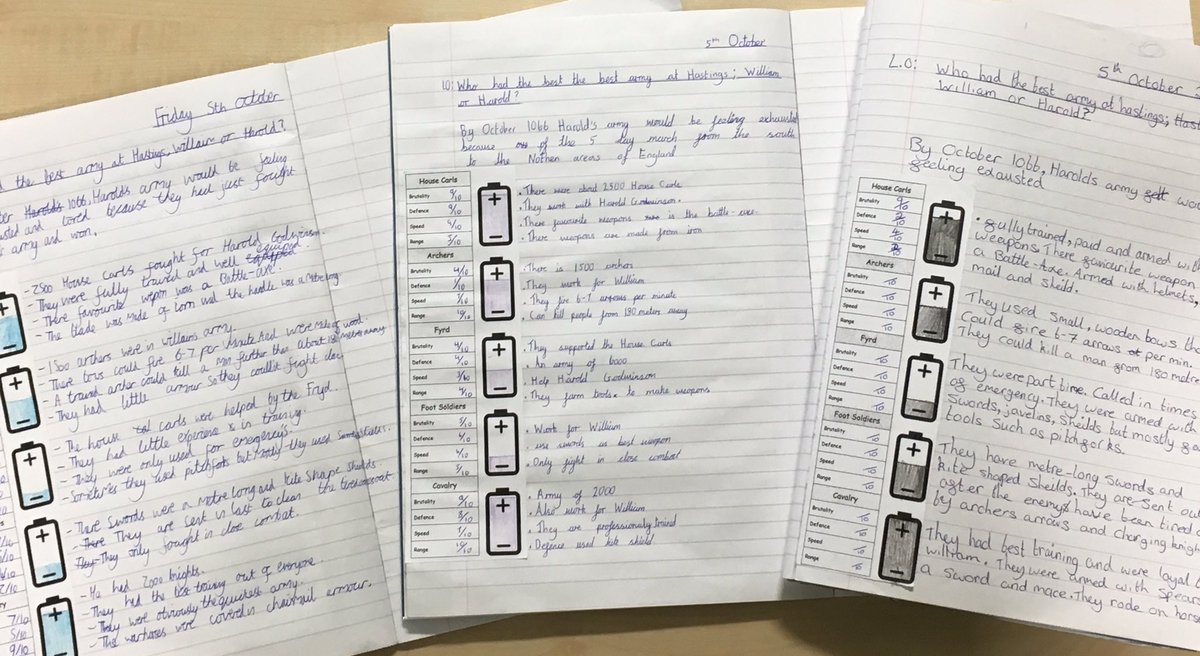 Friday 5th October
the best army at Hastings, William or Harold?
1066, Harold's army would be feeling
and tired because they had just fought
army and won.
- 2500 House Carls fought for Harold Godwinson.
- They were fully trained and well equipped
- There favourite wepon was a Battle-axe.
- The blade was made of Iorn and the handle was a Metre long
- 1500 archers were in williams army.
- There bows could fire 6-7 per minute And were Made of wood.
- A trained archer could kill a man further than about 180 metres away
- They had little armour so they couldn't fight close
- The house carls were helped by the Fryd.
- They had little experience in training.
- They were only used for emergency's.
- Sometimes they used pitchforks but Mostly they used
- There Swords were a Metre long and Kite Shape Sheilds
- They are Sent in last to clean the
- They only fought in close combat.
- He had 2000 knights.
- They had the best training out of everyone
- They were obviously the quickest army.
- The warhorses were covered in chainmail armour.
7/10
5/10
9/10
5th October
LO: Who had the best the best army at Hastings; William
or Harold?
By October 1066 Harold's army would be feeling exhausted
because of the 5 day march from the south
to the Nothen areas of England
House Carls
Brutality 9/10
Defence 9/10
Speed
Range
• There were about 2500 House Carls
• They work with Harold Godwinson.
• There favourite weapons is the battle-axe.
• There weapons are made from iron
Archers
Brutality 4/10
Defence
Speed
Range
• There is 1500 archers
• They work for William
• They fire 6-7 arrows per minute
• Can kill people from 180 meters away
Fyrd
Brutality 4/10
Defence
Speed
Range
• They supported the House Carls
• An army of 6000
• Help Harold Godwinson
• They farm tools to make weapons
Foot Soldiers
Brutality
Defence
Speed
Range
• Work for William
• use swords as best weapon
• Only fight in close combat
Cavalry
Brutality
Defence
Speed
Range
• Army of 2000
• Also work for William
• They are professionally trained
• Defence used kite shield
5th October
L.O: Who had the best army at hastings;
William or Harold?
By October 1066, Harolds army
feeling exhausted
House Carls
Brutality
Defence
Speed
Range
• fully trained, paid and armed with
weapons. There favourite weapon
a Battle-Axe. Armed with helmets,
mail and sheild.
Archers
Brutality
Defence
Speed
Range
They used small, wooden bows
Could fire 6-7 arrows per min.
They could kill a man from 180 metre
Fyrd
Brutality
Defence
Speed
Range
They were part time. Called in times
of emergency. They were armed with
Swords, javelins, Sheilds but mostly
tools such as pitchforks.
Foot Soldiers
Brutality
Defence
Speed
Range
They have metre-long swords and
kite shaped sheilds. They are sent out
after the enemys have been tired
by archers arrows and charging knigh
Cavalry
Brutality
Defence
Speed
Range
They had best training and were loyal
william. They were armed with spear
a sword and mace. They rode on horse